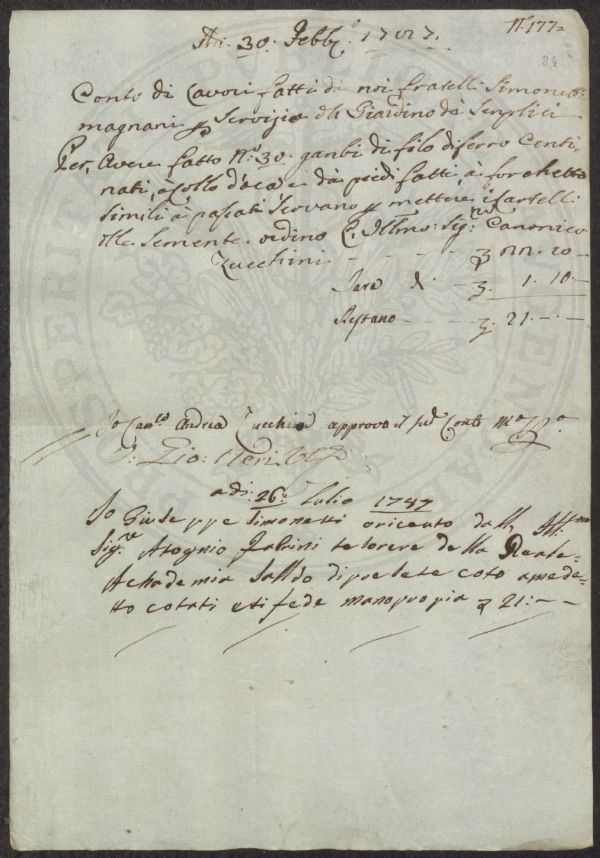 N.° 177=
84
Adi. 30. Febb.° 1787.
Conto di Lavori fatti da noi fratelli Simonetti
magnani p Servizio dl Giardino dè Senplici
Per, Avere fatto N.° 30. ganbi di filo di ferro Centi-
nati, a collo d'oca e dà piedi fatti, à forchetta
simili à p mettere, i Cartelli
dlle Semente. ordino L Illmo: Sig.re Canonico
Zucchini - - - 22. 10 -
Tara d. - 1. 10 -
Restano - - 21. - -
Io Can.co Andrea Zucchini approvo il sud. Conto m° pp.a
adi: 26: Lulio 1787
Io Giuseppe Simonetti o riceuto dall Ill.mo
Sig.re Atognio Fabrini tesorere della Reale=
Achademia Salldo di prelete coto apiede=
tto cotati e ti fede mano propia 21: - -